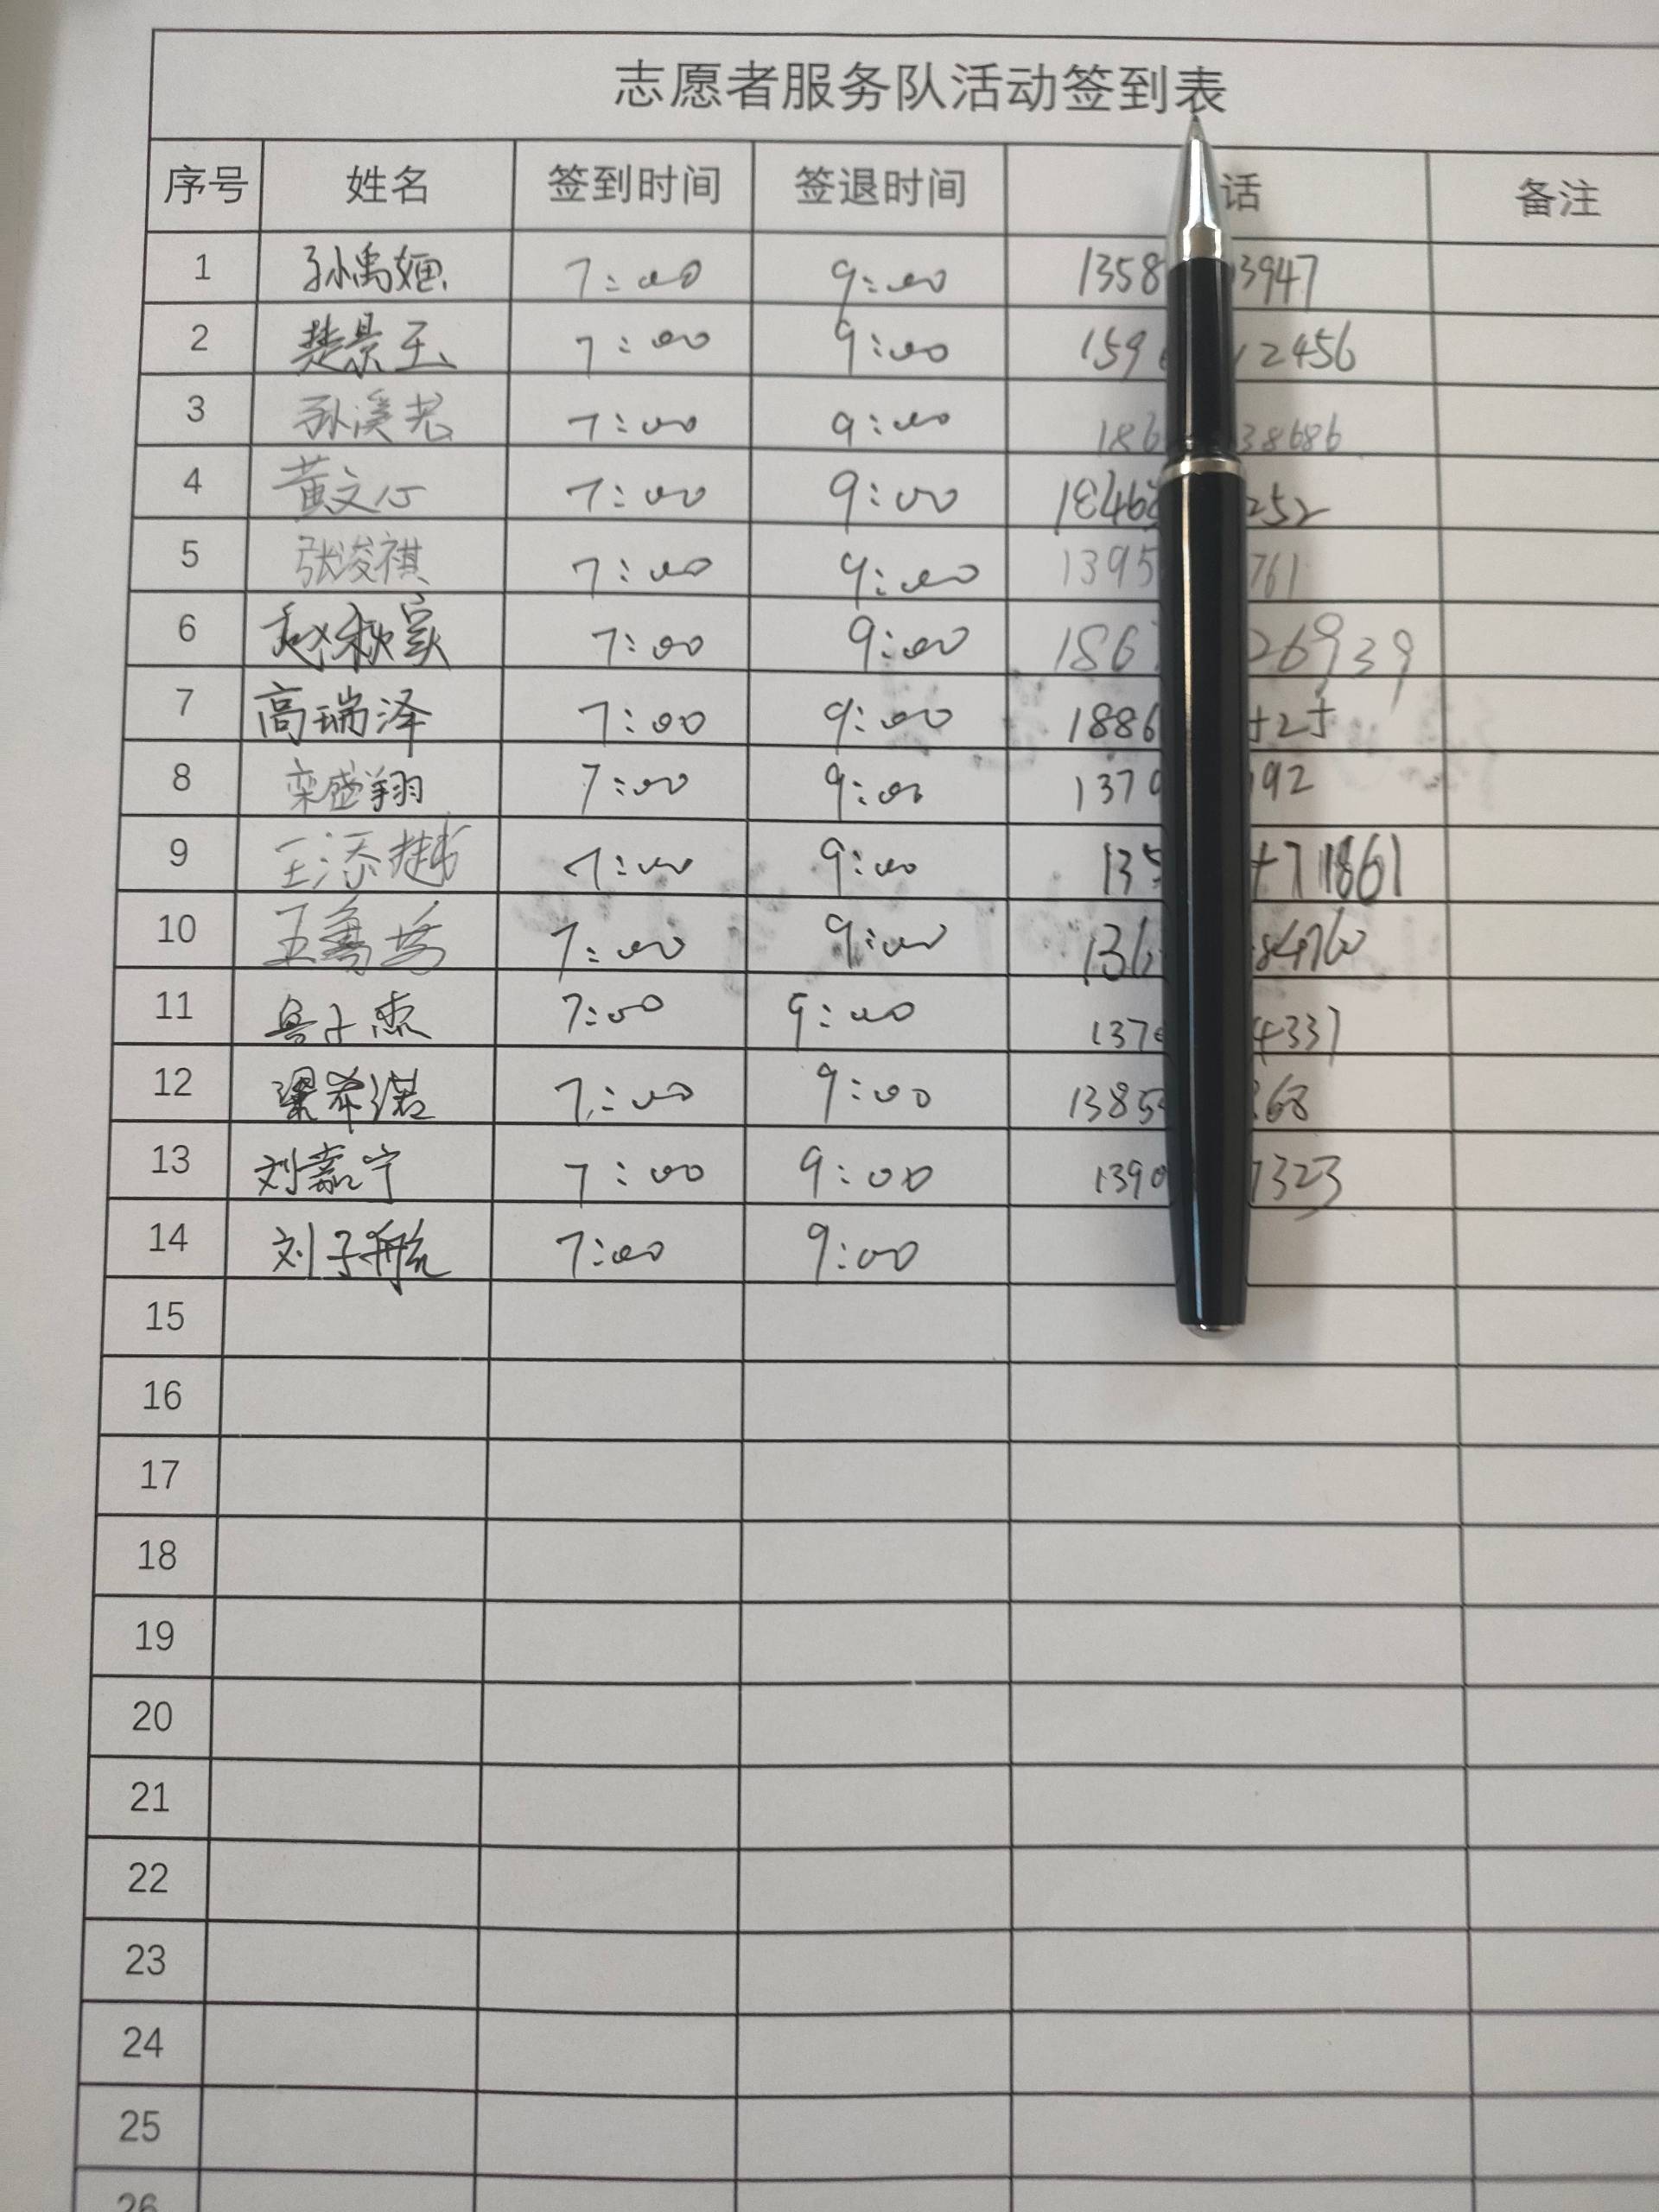 志愿者服务队活动签到表
序号 姓名 签到时间 签退时间 话 备注
1 孙禹 7:00 9:00 1358 3947
2 楚景玉 7:00 9:00 159 12456
3 孙溪 7:00 9:00 186 38686
4 黄文心 7:00 9:00 18468 252
5 张浚祺 7:00 9:00 1395 761
6 赵秋实 7:00 9:00 1867 26939
7 高瑞泽 7:00 9:00 1886 525
8 栾盛翔 7:00 9:00 1379 192
9 王添越 7:00 9:00 135 71861
10 王 7:00 9:00 136 84760
11 鲁子杰 7:00 9:00 137 4337
12 梁希诺 7:00 9:00 1385 868
13 刘嘉宁 7:00 9:00 1390 7323
14 刘子航 7:00 9:00
15
16
17
18
19
20
21
22
23
24
25
26